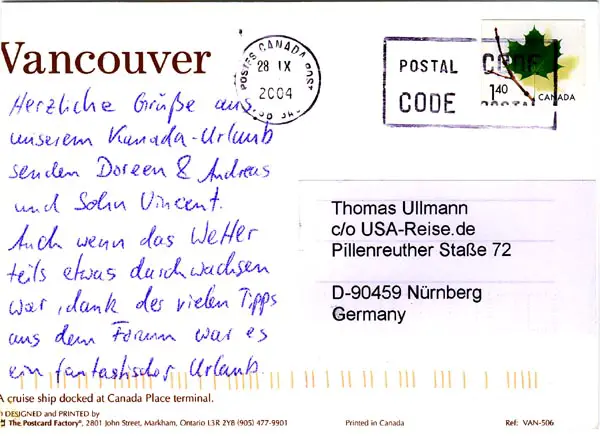 Vancouver
Herzliche Grüße aus
unserem Kanada-Urlaub
senden Doreen & Andreas
und Sohn Vincent.
Auch wenn das Wetter
teils etwas durchwachsen
war, dank der vielen Tipps
aus dem Forum war es
ein fantastischer Urlaub.
A cruise ship docked at Canada Place terminal.
© DESIGNED and PRINTED by
The Postcard Factory®, 2801 John Street, Markham, Ontario L3R 2Y8 (905) 477-9901
Printed in Canada
Ref: VAN-506
POSTES CANADA POST
28 IX
2004
POSTAL CODE
CODE POSTAL
1.40
CANADA
Thomas Ullmann
c/o USA-Reise.de
Pillenreuther Staße 72
D-90459 Nürnberg
Germany